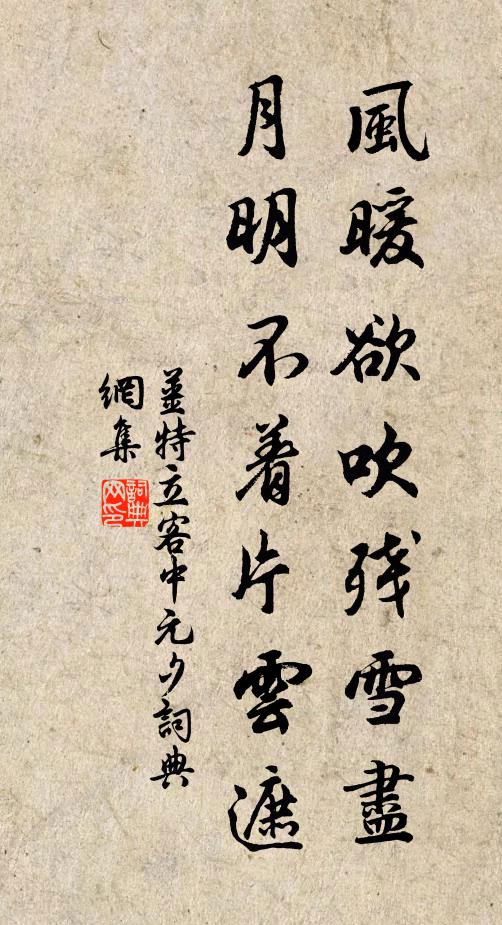 風暖欲吹残雪盡
月明不着片雲遮
姜特立客中元夕詞典
網集
詞典網印